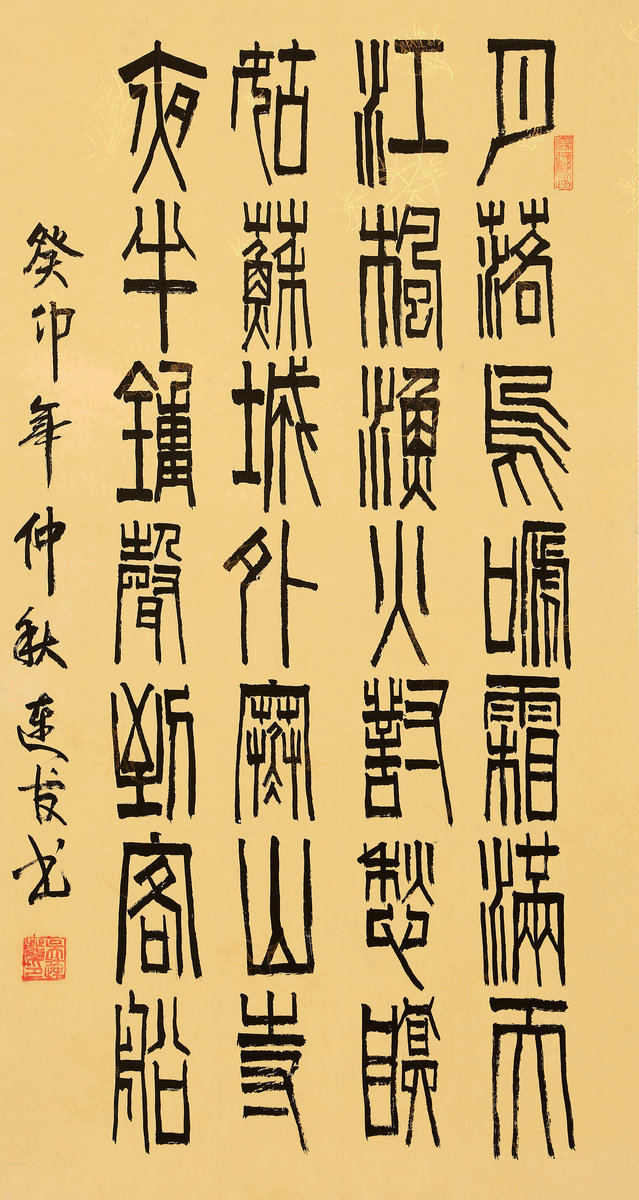 月落烏嗁霜滿天
江楓漁火對愁瞑
姑蘇城外寒山寺
夜半鐘聲到客船
癸卯年仲秋连发书